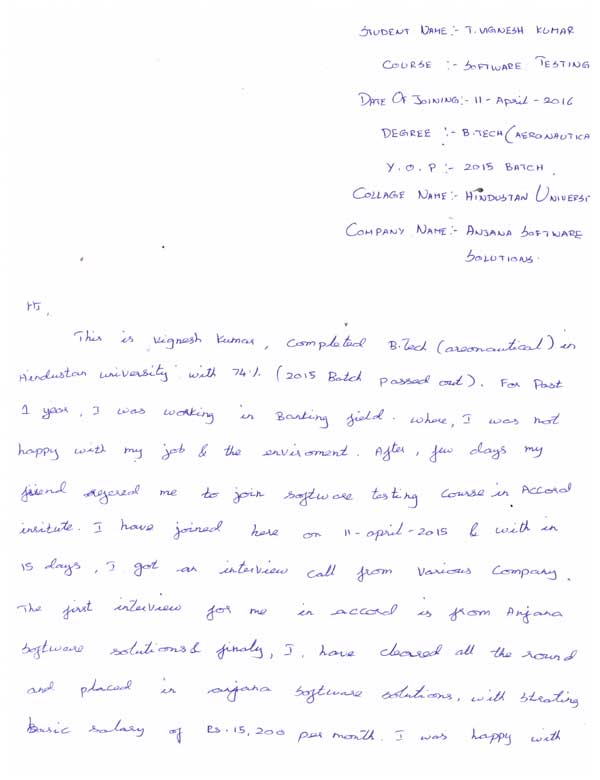 STUDENT NAME:- T.VIGNESH KUMAR
COURSE :- SOFTWARE TESTING
DATE OF JOINING:- 11- April - 2016
DEGREE :- B.TECH (AERONAUTICA
Y.O.P :- 2015 BATCH
COLLAGE NAME:- HINDUSTAN UNIVERSI
COMPANY NAME:- ANJANA SOFTWARE
SOLUTIONS.
Hi,
This is Vignesh Kumar, Completed B.Tech (areonautical) in
Hindustan university with 74% (2015 Batch passed out). For Past
1 year, I was working in Banking field. where, I was not
happy with my job & the enviroment. After, few days my
friend refered me to join software testing course in Accord
insitute. I have joined here on 11-april-2015 & with in
15 days, I got an interview call from Various Company.
The first interview for me in accord is from Anjana
Software solutions & finaly, I have cleared all the round
and placed in anjana software solutions, with strating
Basic salary of Rs.15,200 per month. I was happy with